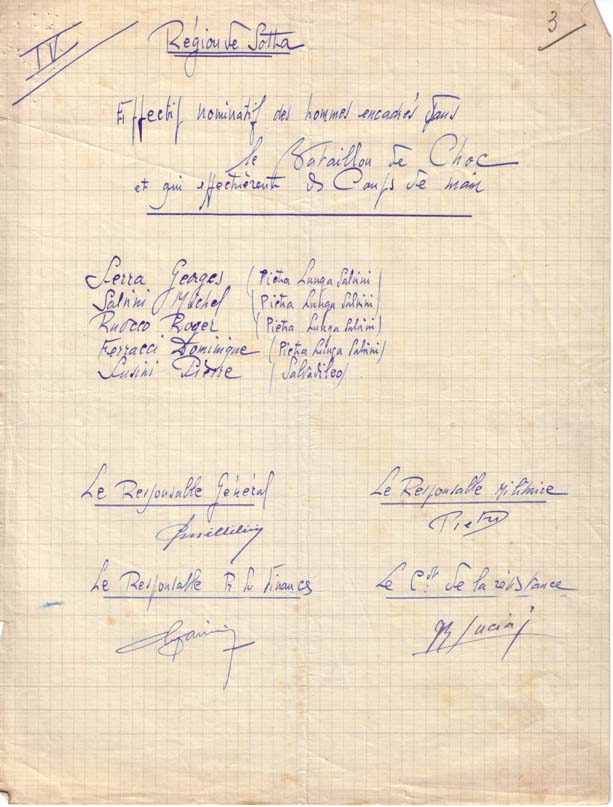 IV
3
Région de Sotta
Effectif nominatif des hommes encadrés dans
le Bataillon de Choc
et qui effectuèrent des Coups de main
Serra Georges (Pietra Lunga Salvini)
Salvini Michel (Pietra Lunga Salvini)
Ruocco Roger (Pietra Lunga Salvini)
Ferracci Dominique (Pietra Lunga Salvini)
Susini Pierre (Salvadileo)
Le Responsable Général
Le Responsable Militaire
Pietri
Le Responsable Finances
Le Ct de la résistance